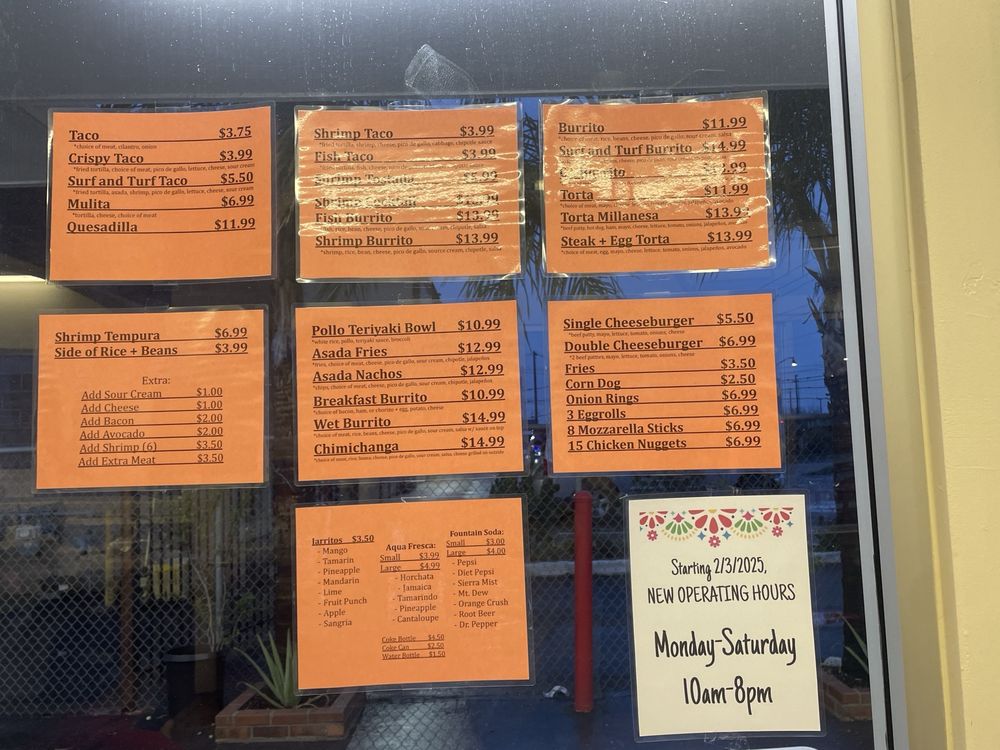 Taco $3.75
*choice of meat, cilantro, onion
Crispy Taco $3.99
*fried tortilla, choice of meat, pico de gallo, lettuce, cheese, sour cream
Surf and Turf Taco $5.50
*fried tortilla, asada, shrimp, pico de gallo, lettuce, cheese, sour cream
Mulita $6.99
*tortilla, cheese, choice of meat
Quesadilla $11.99
Shrimp Taco $3.99
*fried tortilla, shrimp, cheese, pico de gallo, cabbage, chipotle sauce
Fish Taco $3.99
Shrimp Tostada $5.99
Shrimp Cocktail
Fish Burrito $13.99
*fish, rice, bean, cheese, pico de gallo, sour cream, chipotle, salsa
Shrimp Burrito $13.99
*shrimp, rice, bean, cheese, pico de gallo, source cream, chipotle, salsa
Burrito $11.99
*choice of meat, rice, beans, cheese, pico de gallo, sour cream, salsa
Surf and Turf Burrito $14.99
Torta $11.99
Torta Millanesa $13.99
*beef patty, hot dog, ham, mayo, cheese, lettuce, tomato, onions, jalapeños
Steak + Egg Torta $13.99
*choice of meat, egg, mayo, cheese, lettuce, tomato, onions, jalapeños, avocado
Shrimp Tempura $6.99
Side of Rice + Beans $3.99
Extra:
Add Sour Cream $1.00
Add Cheese $1.00
Add Bacon $2.00
Add Avocado $2.00
Add Shrimp (6) $3.50
Add Extra Meat $3.50
Pollo Teriyaki Bowl $10.99
*white rice, pollo, teriyaki sauce, broccoli
Asada Fries $12.99
*fries, choice of meat, cheese, pico de gallo, sour cream, chipotle, jalapeños
Asada Nachos $12.99
*chips, choice of meat, cheese, pico de gallo, sour cream, chipotle, jalapeños
Breakfast Burrito $10.99
*choice of bacon, ham, or chorizo + egg, potato, cheese
Wet Burrito $14.99
*choice of meat, rice, beans, cheese, pico de gallo, sour cream, salsa w/ sauce on top
Chimichanga $14.99
*choice of meat, rice, beans, cheese, pico de gallo, sour cream, salsa, cheese grilled on outside
Single Cheeseburger $5.50
*beef patty, mayo, lettuce, tomato, onions, cheese
Double Cheeseburger $6.99
*2 beef patties, mayo, lettuce, tomato, onions, cheese
Fries $3.50
Corn Dog $2.50
Onion Rings $6.99
3 Eggrolls $6.99
8 Mozzarella Sticks $6.99
15 Chicken Nuggets $6.99
Jarritos $3.50
- Mango
- Tamarin
- Pineapple
- Mandarin
- Lime
- Fruit Punch
- Apple
- Sangria
Aqua Fresca:
Small $3.99
Large $4.99
- Horchata
- Jamaica
- Tamarindo
- Pineapple
- Cantaloupe
Coke Bottle $4.50
Coke Can $2.50
Water Bottle $1.50
Fountain Soda:
Small $3.00
Large $4.00
- Pepsi
- Diet Pepsi
- Sierra Mist
- Mt. Dew
- Orange Crush
- Root Beer
- Dr. Pepper
Starting 2/3/2025,
NEW OPERATING HOURS
Monday-Saturday
10am-8pm